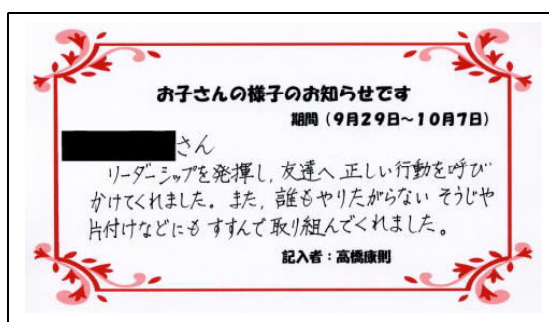 お子さんの様子のお知らせです
期間（9月29日～10月7日）
さん
リーダーシップを発揮し，友達へ正しい行動を呼び
かけてくれました。また，誰もやりたがらないそうじや
片付けなどにもすすんで取り組んでくれました。
記入者：高橋康則